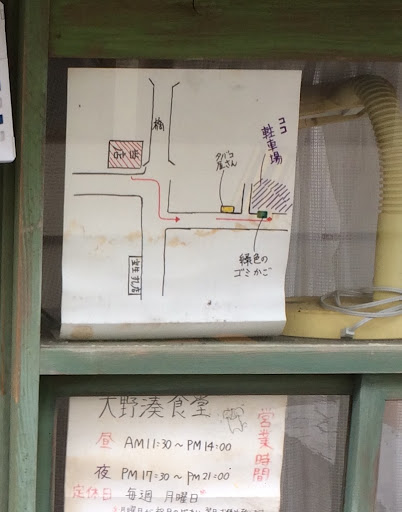 橋
タバコ
屋さん
ココ
駐車場
緑色の
ゴミかご
大野湊食堂
営業時間
昼 AM11:30～PM14:00
夜 PM17:30～PM21:00
定休日 毎週 月曜日